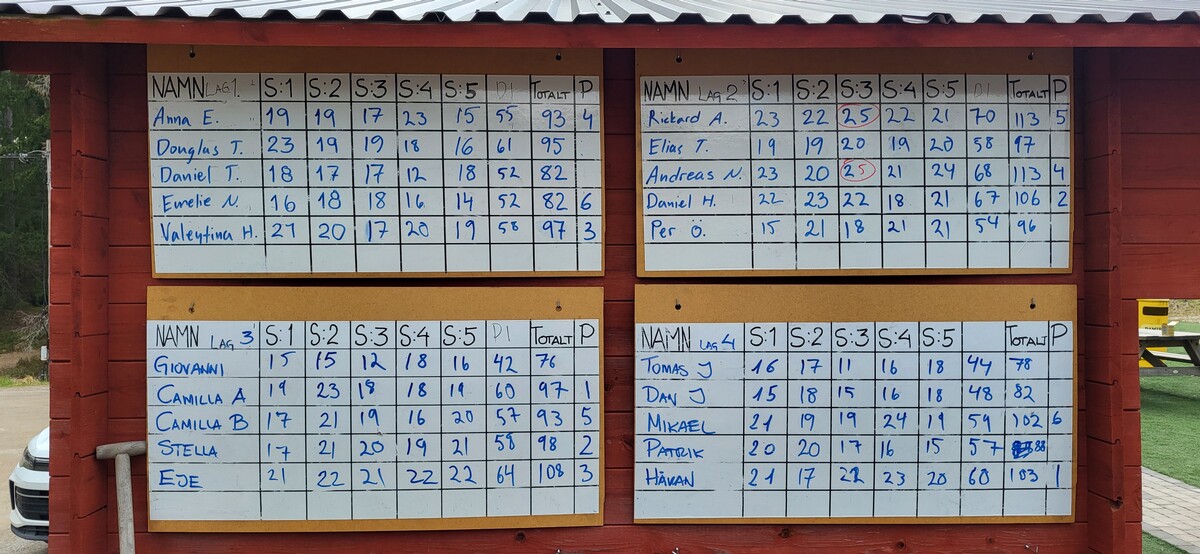 NAMN LAG 1 S:1 S:2 S:3 S:4 S:5 D1 TOTALT P
Anna E. 19 19 17 23 15 55 93 4
Douglas T. 23 19 19 18 16 61 95
Daniel T. 18 17 17 12 18 52 82
Emelie N. 16 18 18 16 14 52 82 6
Valentina H. 21 20 17 20 19 58 97 3
NAMN LAG 2 S:1 S:2 S:3 S:4 S:5 D1 TOTALT P
Rickard A. 23 22 25 22 21 70 113 5
Elias T. 19 19 20 19 20 58 97
Andreas N. 23 20 25 21 24 68 113 4
Daniel H. 22 23 22 18 21 67 106 2
Per Ö. 15 21 18 21 21 54 96
NAMN LAG 3 S:1 S:2 S:3 S:4 S:5 D1 TOTALT P
GIOVANNI 15 15 12 18 16 42 76
CAMILLA A 19 23 18 18 19 60 97 1
CAMILLA B 17 21 19 16 20 57 93 5
STELLA 17 21 20 19 21 58 98 2
EJE 21 22 21 22 22 64 108 3
NAMN LAG 4 S:1 S:2 S:3 S:4 S:5 TOTALT P
TOMAS J 16 17 11 16 18 44 78
DAN J 15 18 15 16 18 48 82
MIKAEL 21 19 19 24 19 59 102 6
PATRIK 20 20 17 16 15 57 88
HÅKAN 21 17 22 23 20 60 103 1